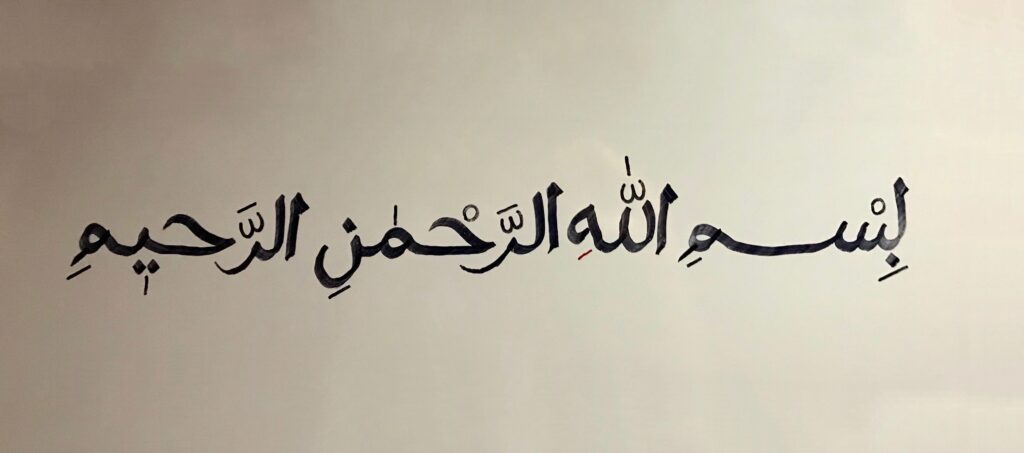 بِسْمِ اللّٰهِ الرَّحْمٰنِ الرَّحيٖمِ